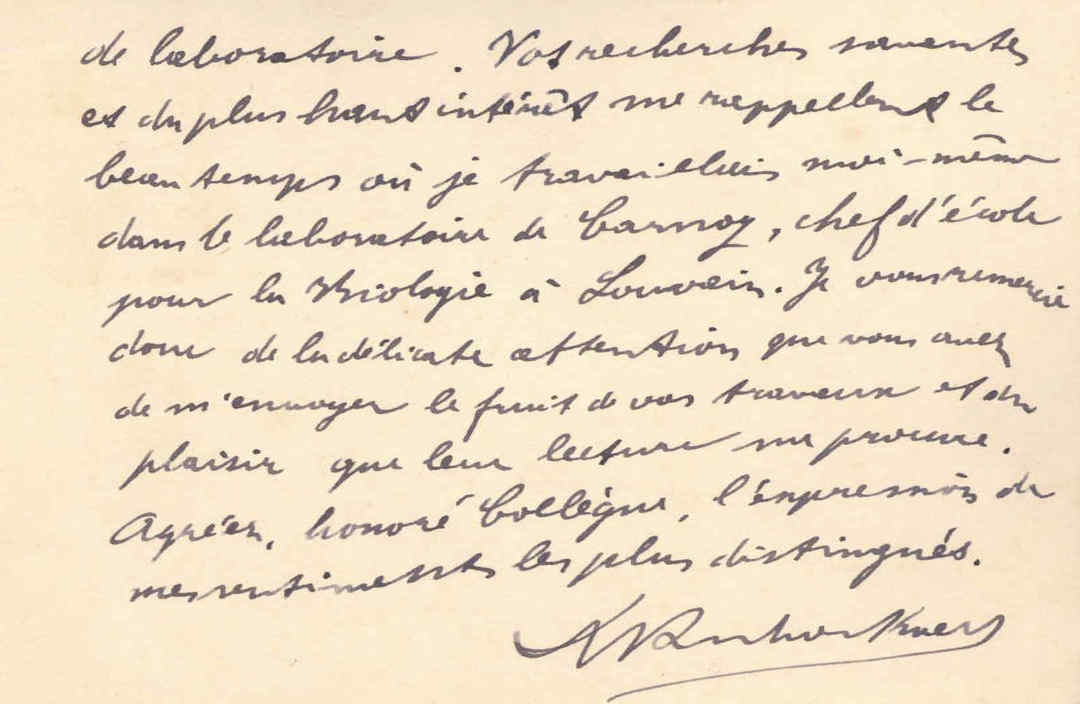 de laboratoire. Vos recherches savantes
et du plus haut intérêt me rappellent le
beau temps où je travaillais moi-même
dans le laboratoire de Carnoy, chef d'école
pour la Biologie à Louvain. Je vous remercie
donc de la délicate attention que vous avez
de m'envoyer le fruit de vos travaux et du
plaisir que leur lecture me procure.
Agréez, honoré Collègue, l'expression de
mes sentiments les plus distingués.